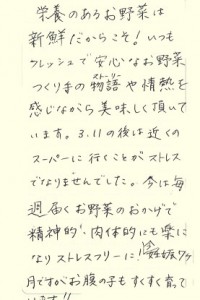 栄養のあるお野菜は
新鮮だからこそ！いつも
フレッシュで安心なお野菜
つくりまの物語や情熱を
ストーリー
感じながら美味しく頂いて
います。3.11の後は近くの
スーパーに行くことがストレス
でなりませんでした。今は毎
週届くお野菜のおかげで
精神的・肉体的にも楽に
なりストレスフリーに！妊娠7ヶ
月ですがお腹の子もすくすく育って
います!!